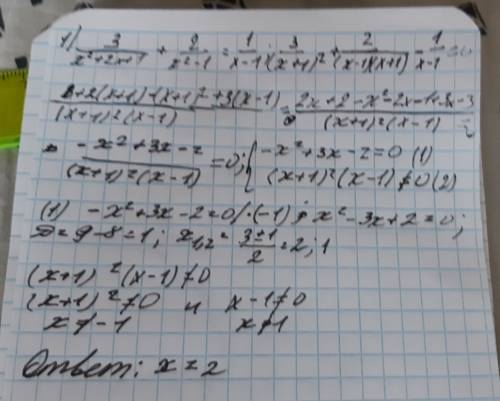 1) 3/(x²+2x+1) + 2/(x²-1) = 1/(x-1); 3/(x+1)² + 2/((x-1)(x+1)) = 1/(x-1) =0
(3+2(x+1)-(x+1)²+3(x-1))/((x+1)²(x-1)) = (2x+2-x²-2x-1+3x-3)/((x+1)²(x-1)) =
= (-x²+3x-2)/((x+1)²(x-1)) = 0; { -x²+3x-2=0 (1)
(x+1)²(x-1)≠0 (2)
(1) -x²+3x-2=0/·(-1); x²-3x+2=0;
D=9-8=1; x1,2 = (3±1)/2 = 2; 1
(x+1)²(x-1)≠0
(x+1)²≠0 и x-1≠0
x≠-1 x≠1
Ответ: x=2